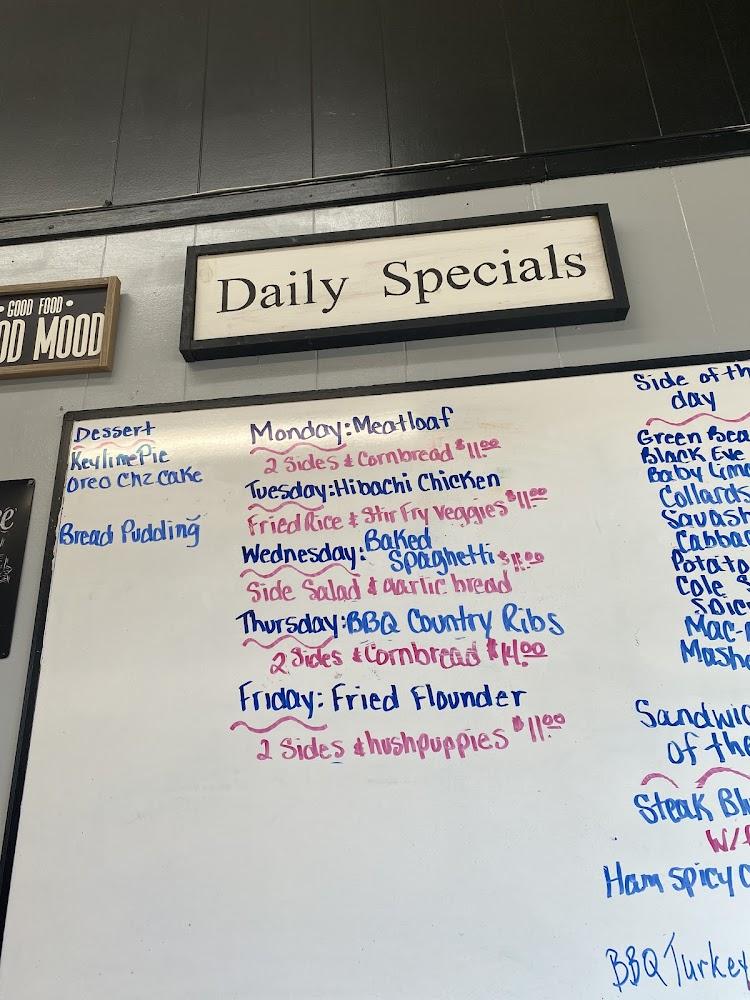 Daily Specials
• GOOD FOOD •
OD MOOD
Dessert
Keylime Pie
Oreo Chz Cake
Bread Pudding
Monday: Meatloaf
2 Sides & Cornbread $11.00
Tuesday: Hibachi Chicken
Fried Rice & Stir Fry Veggies $11.00
Wednesday: Baked
Spaghetti
Side Salad & Garlic bread
Thursday: BBQ Country Ribs
2 Sides & Cornbread $14.00
Friday: Fried Flounder
2 Sides & hushpuppies $11.00
Side of th
day
Green Bea
Black Eye
Baby Lim
Collards
Squash
Cabba
Potato
Cole S
Spic
Mac-
Masha
Sandwic
of the
Steak Bl
W/
Ham spicy C
BBQ Turkey